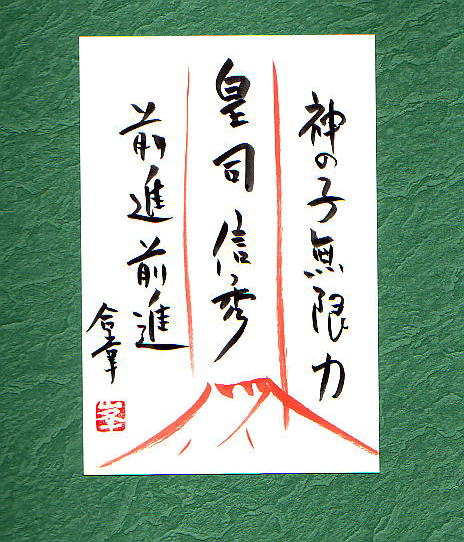 神の子無限力
皇司 信秀
前進前進
合掌